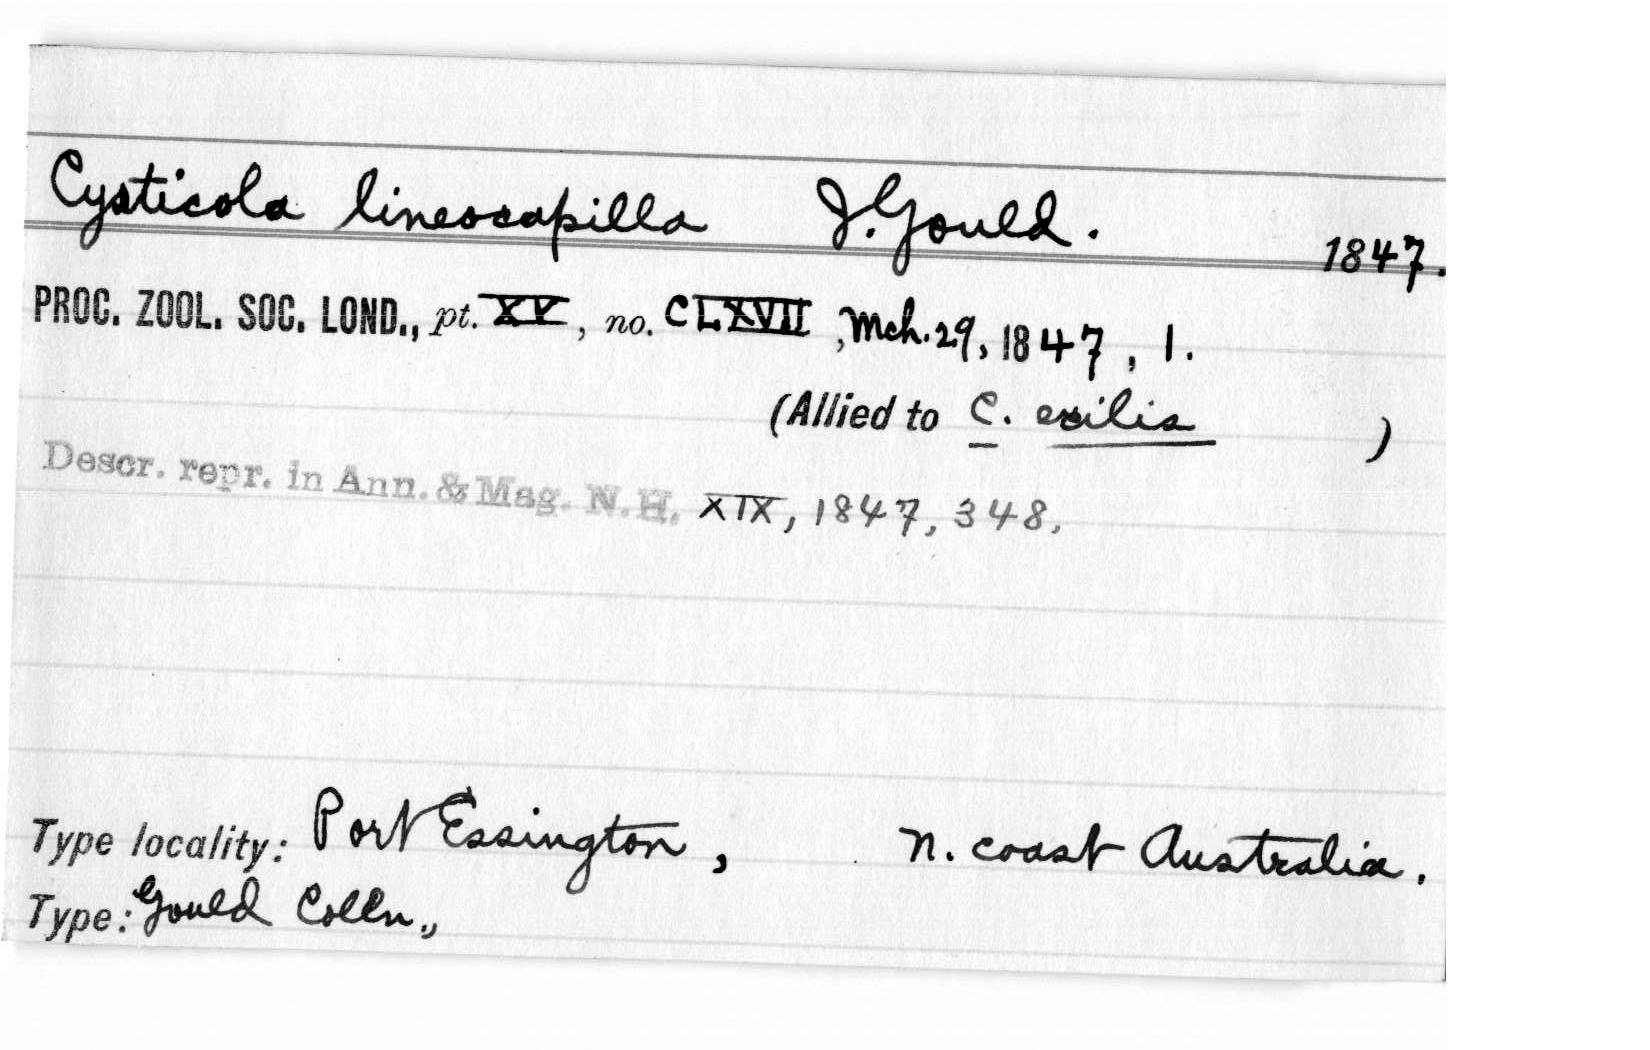 Cysticola lineocapilla J. Gould. 1847.
PROC. ZOOL. SOC. LOND., pt. XV, no. CLXVII, Mch. 29, 1847, 1.
(Allied to C. exilis )
Descr. repr. in Ann. & Mag. N.H. XIX, 1847, 348.
Type locality: Port Essington, n. coast Australia.
Type: Gould Colln.,